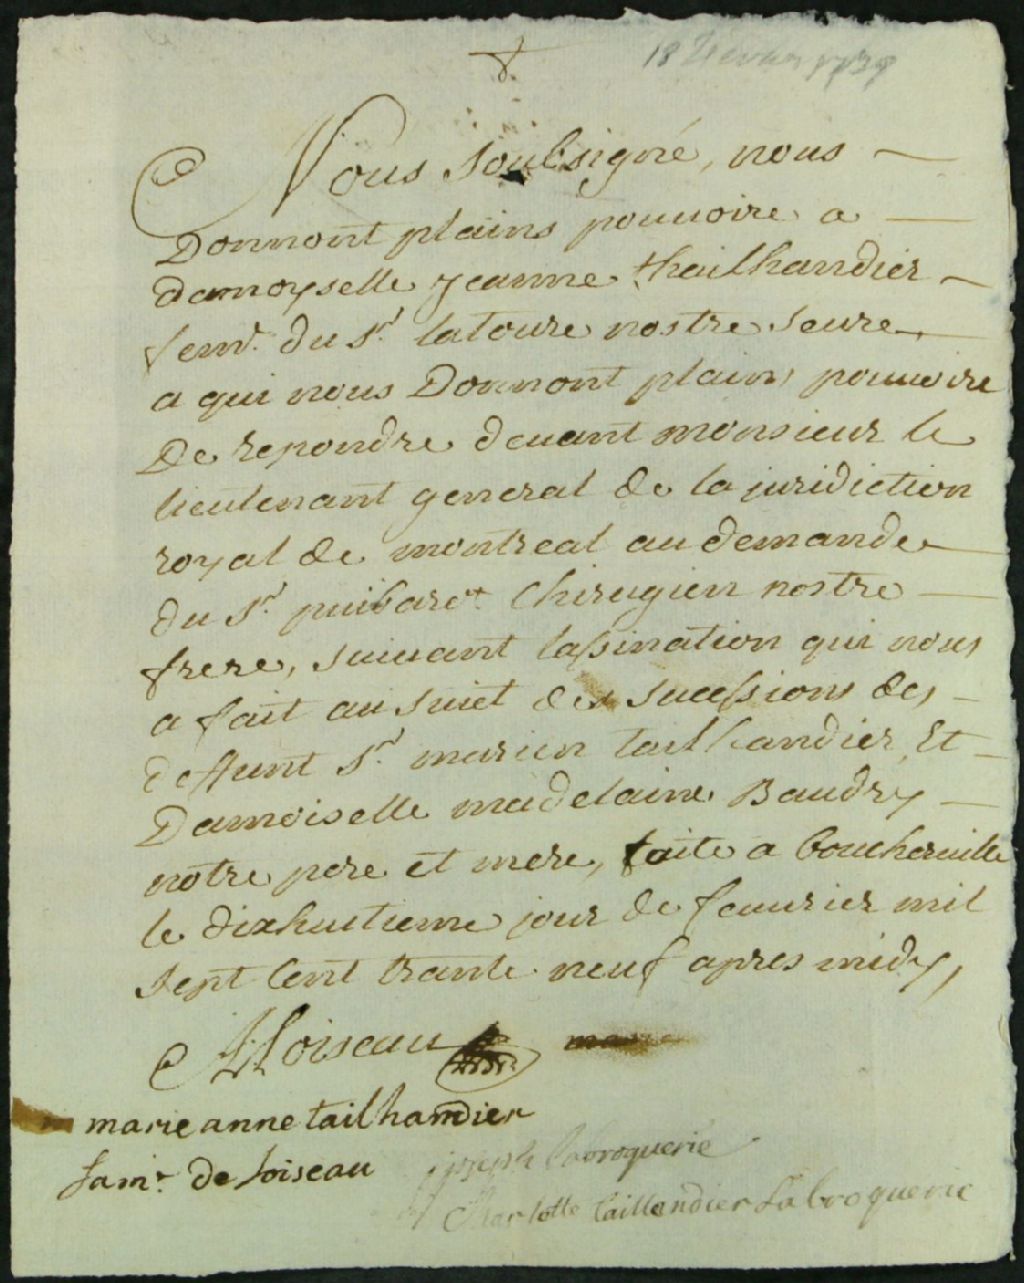 18 fevrier 1739
Nous Soubsigné, nous
Donnont plains pouuoire a
damoyselle jeanne thailhandier
fem^e. du S^r. latoure nostre Seure
a qui nous Donnont plains pouuoire
De repondre deuant monsieur le
lieutenant general de la juridiction
royal de montreal au demande
du S^r. puibaret Chirugien nostre
frere, suiuant lassination qui nous
a fait au suiet des sucessions des
deffunt S^r. marien tailhandier Et
Damoiselle madelaine Baudry
notre pere et mere, faite a boucheruille
le dixhuitieme jour de feaurier mil
sept Cent trante neuf apres midy,
Loiseau
marie anne tailhandier
fam^e. de loiseau
joseph labroquerie
Charlotte taillandier Labroquerie